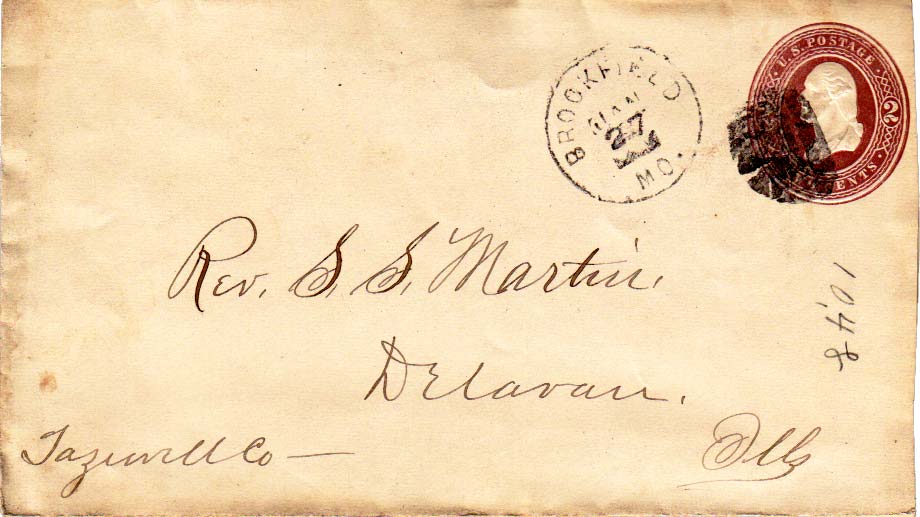 BROOKFIELD
JAN
27
MO.
U.S. POSTAGE
2
CENTS
Rev. S. S. Martin.
Delavan.
Tazewell Co — Ills